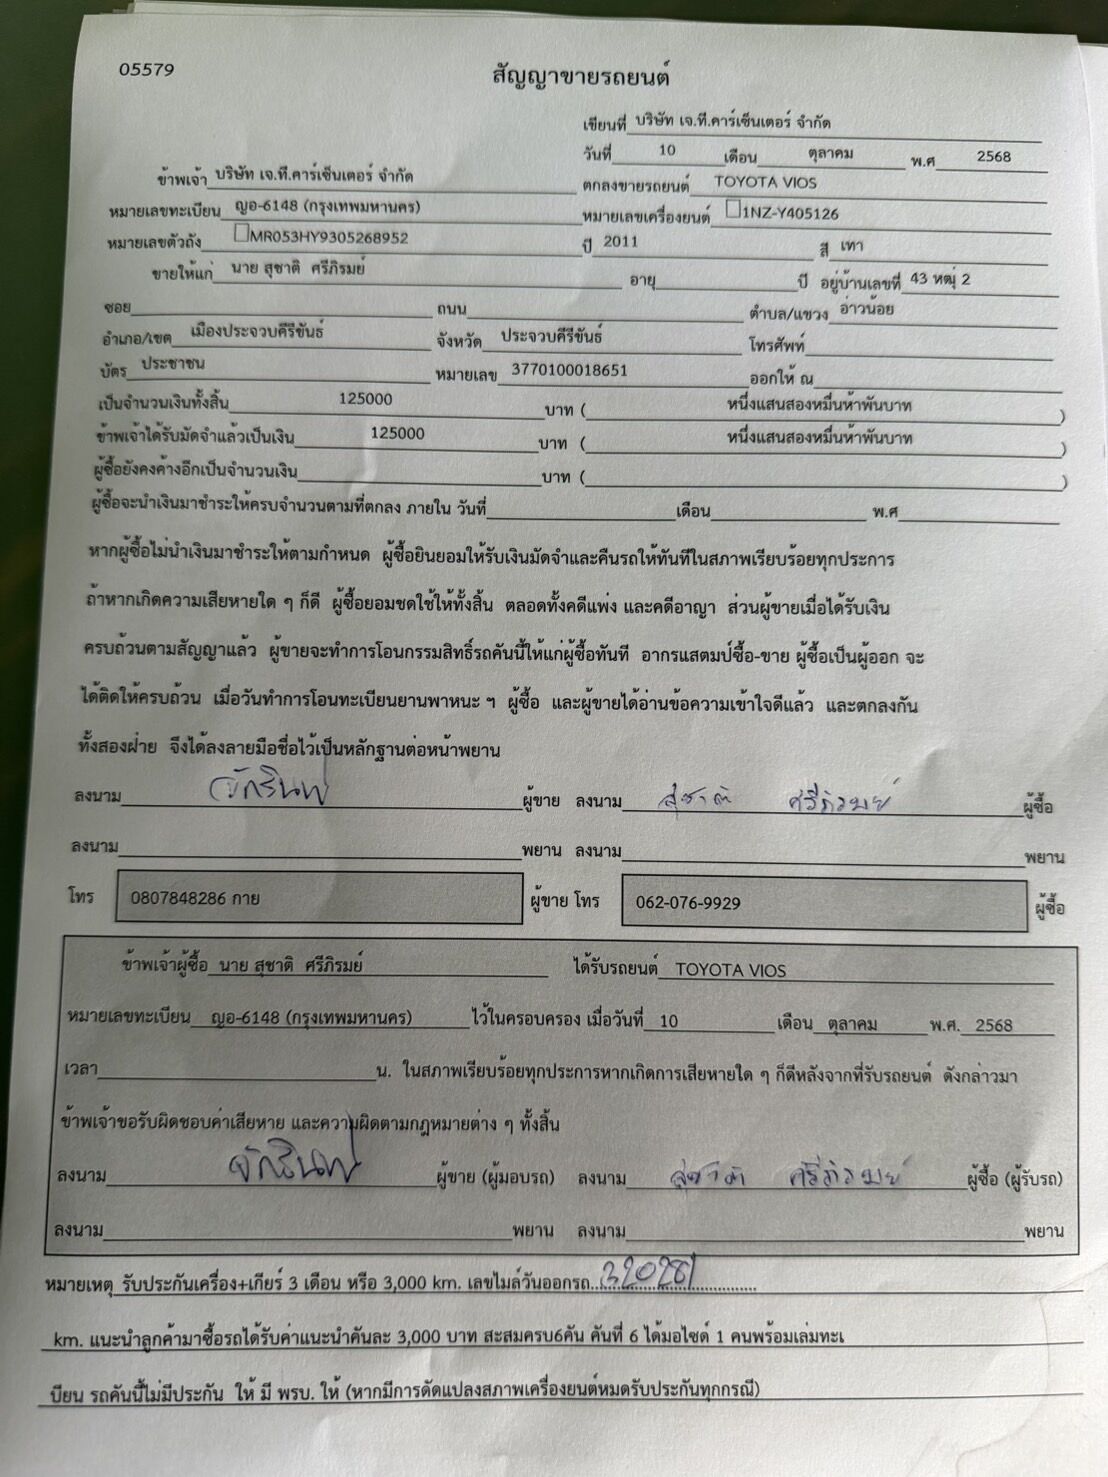 05579
สัญญาขายรถยนต์
เขียนที่ บริษัท เจ.ที.คาร์เซ็นเตอร์ จำกัด
วันที่ 10 เดือน ตุลาคม พ.ศ 2568
ข้าพเจ้า บริษัท เจ.ที.คาร์เซ็นเตอร์ จำกัด ตกลงขายรถยนต์ TOYOTA VIOS
หมายเลขทะเบียน ญอ-6148 (กรุงเทพมหานคร) หมายเลขเครื่องยนต์ 1NZ-Y405126
หมายเลขตัวถัง MR053HY9305268952 ปี 2011 สี เทา
ขายให้แก่ นาย สุชาติ ศรีภิรมย์ อายุ ปี อยู่บ้านเลขที่ 43 หมุ่ 2
ซอย ถนน ตำบล/แขวง อ่าวน้อย
อำเภอ/เขต เมืองประจวบคีรีขันธ์ จังหวัด ประจวบคีรีขันธ์ โทรศัพท์
บัตร ประชาชน หมายเลข 3770100018651 ออกให้ ณ
เป็นจำนวนเงินทั้งสิ้น 125000 บาท ( หนึ่งแสนสองหมื่นห้าพันบาท )
ข้าพเจ้าได้รับมัดจำแล้วเป็นเงิน 125000 บาท ( หนึ่งแสนสองหมื่นห้าพันบาท )
ผู้ซื้อยังคงค้างอีกเป็นจำนวนเงิน บาท ( )
ผู้ซื้อจะนำเงินมาชำระให้ครบจำนวนตามที่ตกลง ภายใน วันที่ เดือน พ.ศ
หากผู้ซื้อไม่นำเงินมาชำระให้ตามกำหนด ผู้ซื้อยินยอมให้รับเงินมัดจำและคืนรถให้ทันทีในสภาพเรียบร้อยทุกประการ
ถ้าหากเกิดความเสียหายใด ๆ ก็ดี ผู้ซื้อยอมชดใช้ให้ทั้งสิ้น ตลอดทั้งคดีแพ่ง และคดีอาญา ส่วนผู้ขายเมื่อได้รับเงิน
ครบถ้วนตามสัญญาแล้ว ผู้ขายจะทำการโอนกรรมสิทธิ์รถคันนี้ให้แก่ผู้ซื้อทันที อากรแสตมป์ซื้อ-ขาย ผู้ซื้อเป็นผู้ออก จะ
ได้ติดให้ครบถ้วน เมื่อวันทำการโอนทะเบียนยานพาหนะ ฯ ผู้ซื้อ และผู้ขายได้อ่านข้อความเข้าใจดีแล้ว และตกลงกัน
ทั้งสองฝ่าย จึงได้ลงลายมือชื่อไว้เป็นหลักฐานต่อหน้าพยาน
ลงนาม ผู้ขาย ลงนาม สุชาติ ศรีภิรมย์ ผู้ซื้อ
ลงนาม พยาน ลงนาม พยาน
โทร 0807848286 กาย ผู้ขาย โทร 062-076-9929 ผู้ซื้อ
ข้าพเจ้าผู้ซื้อ นาย สุชาติ ศรีภิรมย์ ได้รับรถยนต์ TOYOTA VIOS
หมายเลขทะเบียน ญอ-6148 (กรุงเทพมหานคร) ไว้ในครอบครอง เมื่อวันที่ 10 เดือน ตุลาคม พ.ศ. 2568
เวลา น. ในสภาพเรียบร้อยทุกประการหากเกิดการเสียหายใด ๆ ก็ดีหลังจากที่รับรถยนต์ ดังกล่าวมา
ข้าพเจ้าขอรับผิดชอบค่าเสียหาย และความผิดตามกฎหมายต่าง ๆ ทั้งสิ้น
ลงนาม ผู้ขาย (ผู้มอบรถ) ลงนาม สุชาติ ศรีภิรมย์ ผู้ซื้อ (ผู้รับรถ)
ลงนาม พยาน ลงนาม พยาน
หมายเหตุ รับประกันเครื่อง+เกียร์ 3 เดือน หรือ 3,000 km. เลขไมล์วันออกรถ...320281...
km. แนะนำลูกค้ามาซื้อรถได้รับค่าแนะนำคันละ 3,000 บาท สะสมครบ6คัน คันที่ 6 ได้มอไซด์ 1 คนพร้อมเล่มทะเ
บียน รถคันนี้ไม่มีประกัน ให้ มี พรบ. ให้ (หากมีการดัดแปลงสภาพเครื่องยนต์หมดรับประกันทุกกรณี)